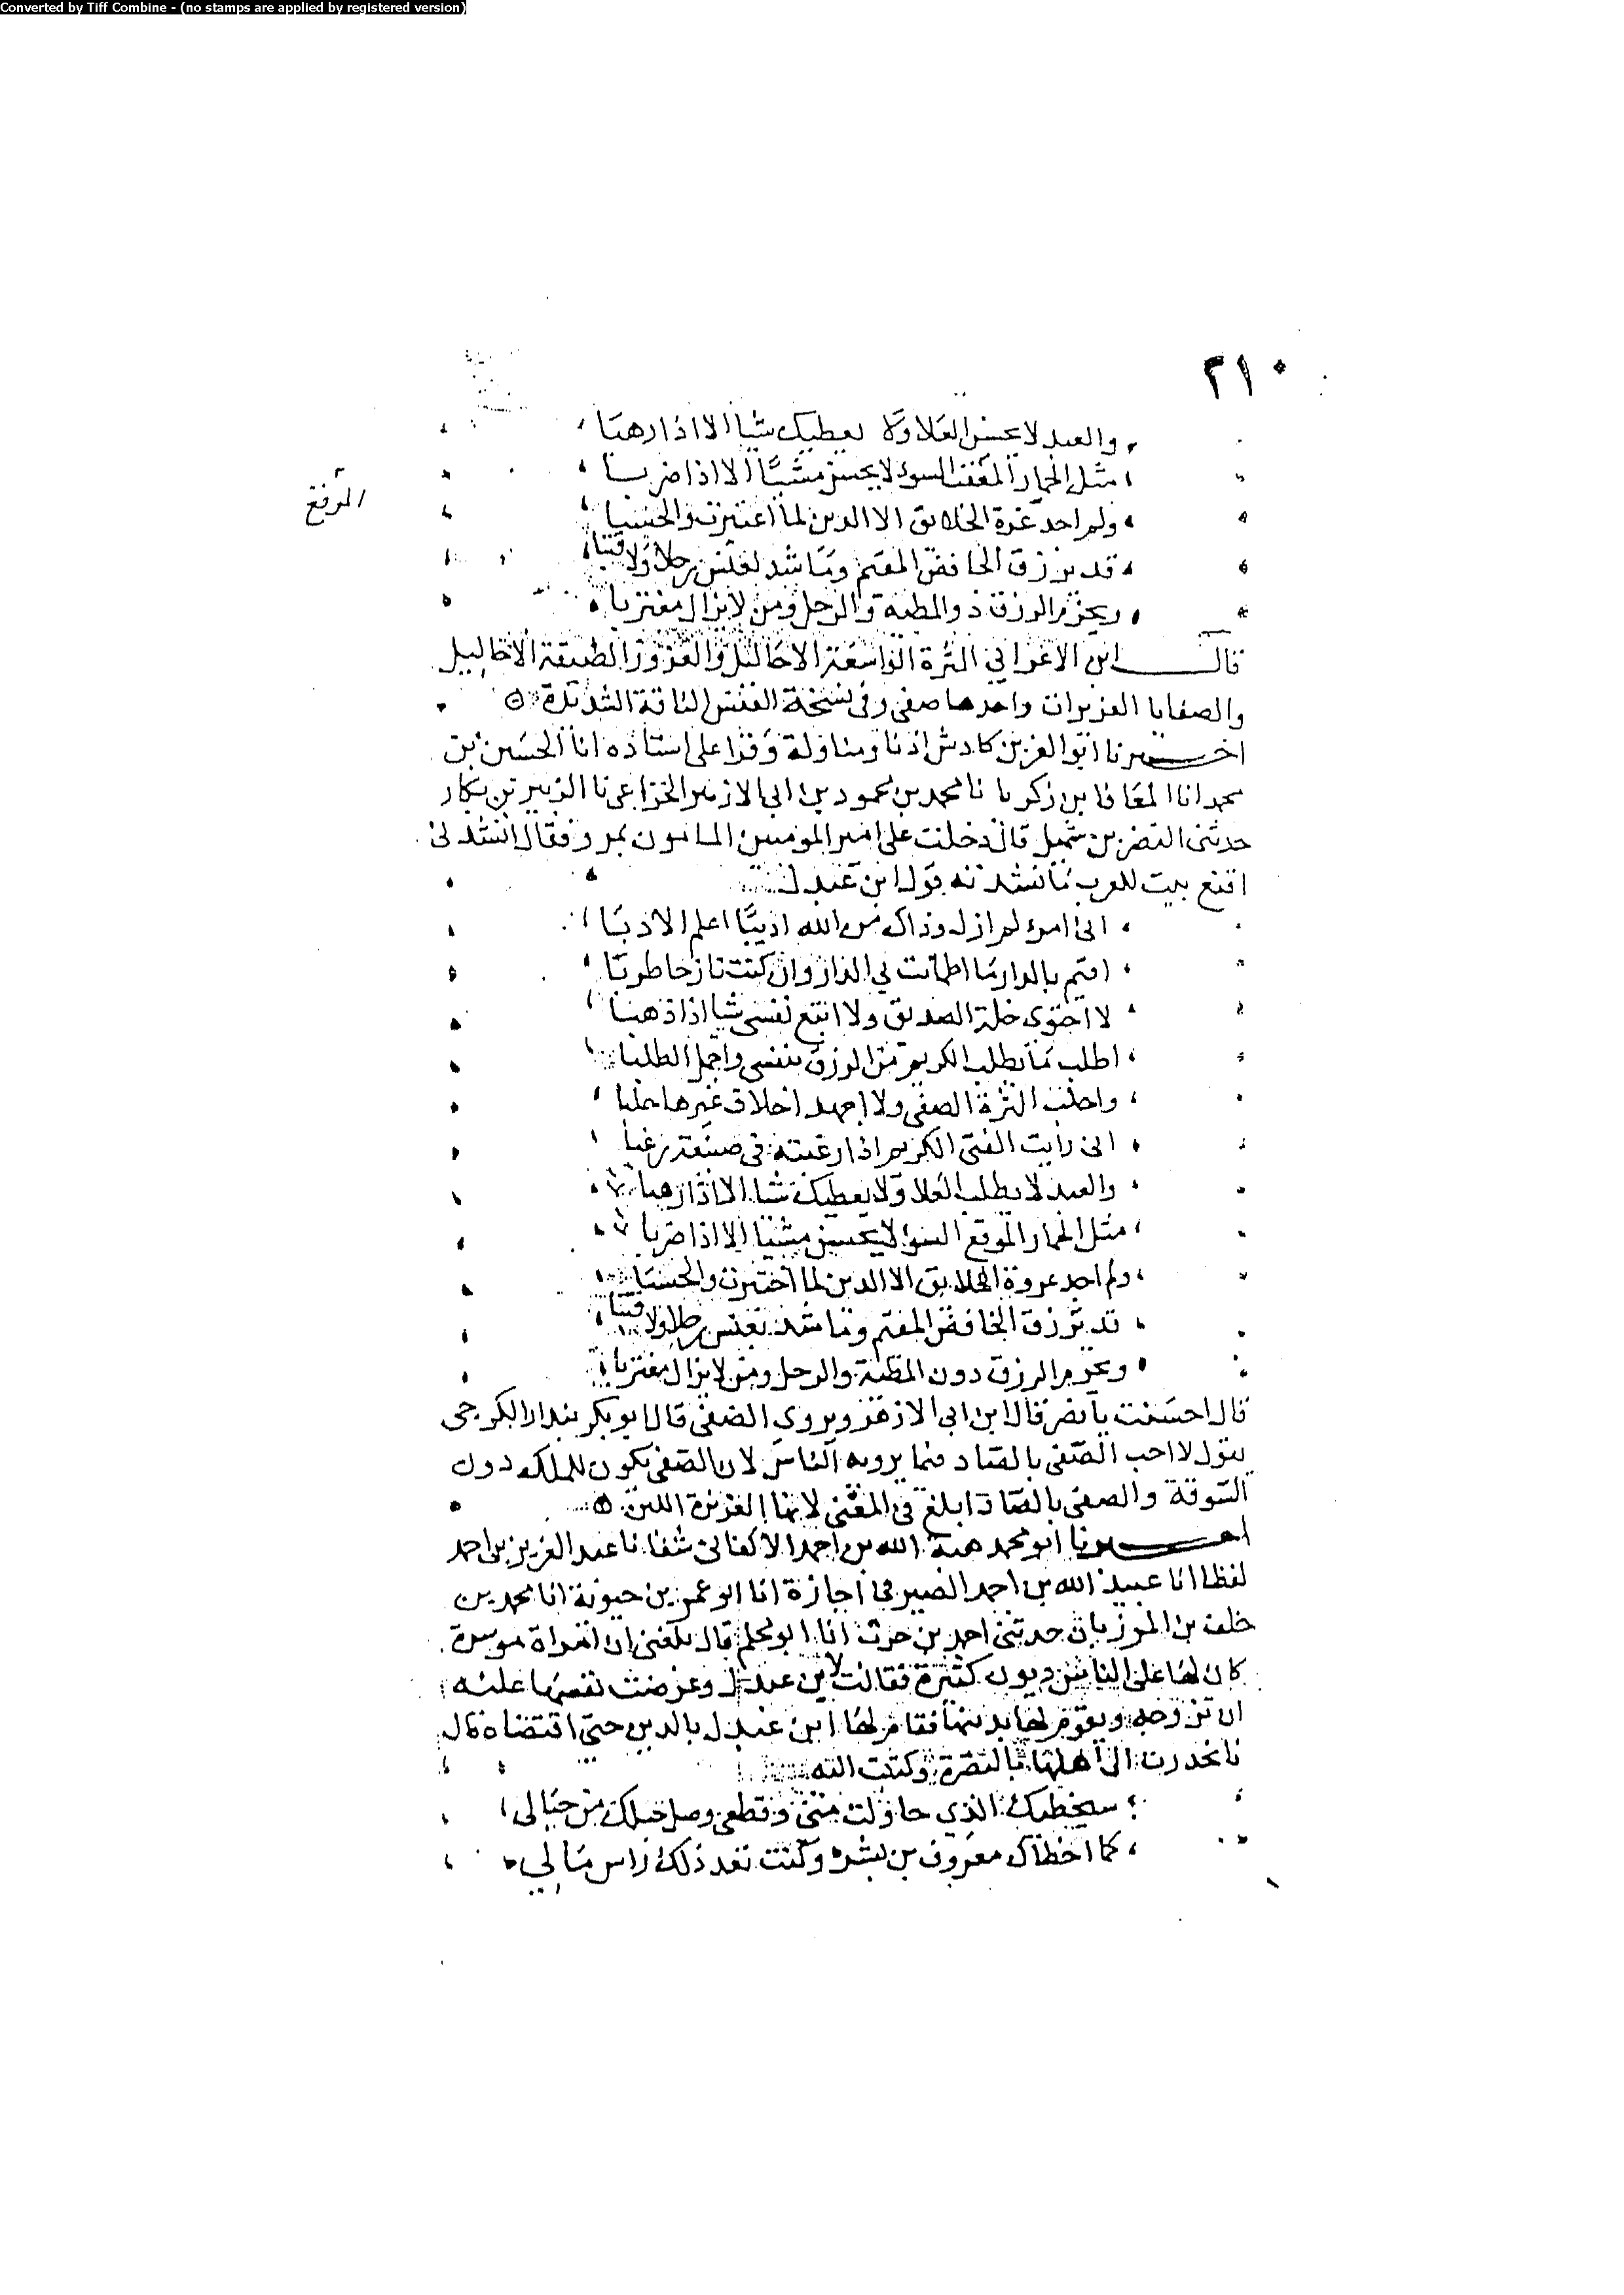 Converted by Tiff Combine - (no stamps are applied by registered version)
٢١٠
والعبد لا يحسن العلا ولا يعطيك شيا الا اذا رهبا
مثل الحمار السوء لا يحسن مشيا الا اذا ضربا
الموقع
ولم اجد عزة الخلايق الا الدين لما اعتبرت والحسبا
قد يرزق الخافض المقيم وما شد لعنس رحلا ولا قتبا
ويحرم الرزق ذو المطية والرحل ومن لا يزال مغتربا
قال ابن الاعرابي الثرة الواسعة الاحاليل والعزوز الضيقة الاحاليل
والصفايا الغزيرات واحدها صفي وفي نسخة العنس الناقة الشديدة
اخبرنا ابو العز بن كادش اذنا ومناولة وقرا على اسناده انا الحسين بن
محمد انا المعافا بن زكريا نا محمد بن محمود بن ابي الازهر الخزاعي نا الزبير بن بكار
حدثني النضر بن شميل قال دخلت على امير المومنين المامون بمرو فقال انشدني
اقنع بيت للعرب فانشدته قول ابن عبدل
اني امرؤ لم ازل وذاك من الله اديبا اعلم الادبا
اقيم بالدار ما اطمانت بي الدار وان كنت نازحا طربا
لا احتوى خلة الصديق ولا اتبع نفسي شيا اذا ذهبا
اطلب ما يطلب الكريم من الرزق بنفسي واجمل الطلبا
واحلب الثرة الصفي ولا اجهد اخلاف غيرها حلبا
اني رايت الفتى الكريم اذا رغبته في صنيعة رغبا
والعبد لا يطلب العلا ولا يعطيك شيا الا اذا رهبا
مثل الحمار الموقع السوء لا يحسن مشيا الا اذا ضربا
ولم اجد عروة الخلايق الا الدين لما اختبرت والحسبا
قد يرزق الخافض المقيم وما شد بعنس رحلا ولا قتبا
ويحرم الرزق دون المطية والرحل ومن لا يزال مغتربا
قال احسنت يا نضر قال ابن ابي الازهر ويروى الضفي قال ابو بكر بندار الكرجي
يقول لا احب الصفي بالصاد فيما يرويه الناس لان الصفي يكون للملك دون
السوقة والصفي بالصاد ابلغ في المعنى لانها الغزيرة اللبن
اخبرنا ابو محمد هبة الله بن احمد الاكفاني شفاها نا عبد العزيز بن احمد
لفظا انا عبيد الله بن احمد الصيرفي اجازة انا ابو عمر بن حيوية انا محمد بن
خلف بن المرزبان حدثني احمد بن حرث انا ابو محلم قال بلغني ان امراة موسرة
كان لها على الناس ديون كثيرة فقالت لابن عبدل وعرضت نفسها عليه
ان تزوجه ويقوم لها بدينها فقام لها ابن عبدل بالدين حتى اقتضاه قال
فانحدرت الى اهلها بالبصرة وكتبت اليه
سيخطيك الذي حاولت مني وقطعي وصل حبلك من حبالي
كما اخطاك معروف بن بشر وكنت تعد ذلك راس مالي